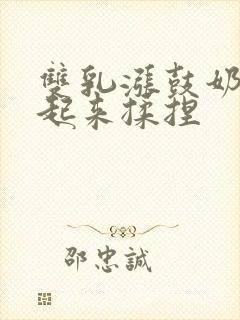 雙乳漲鼓奶
起来揉捏
邵忠誠